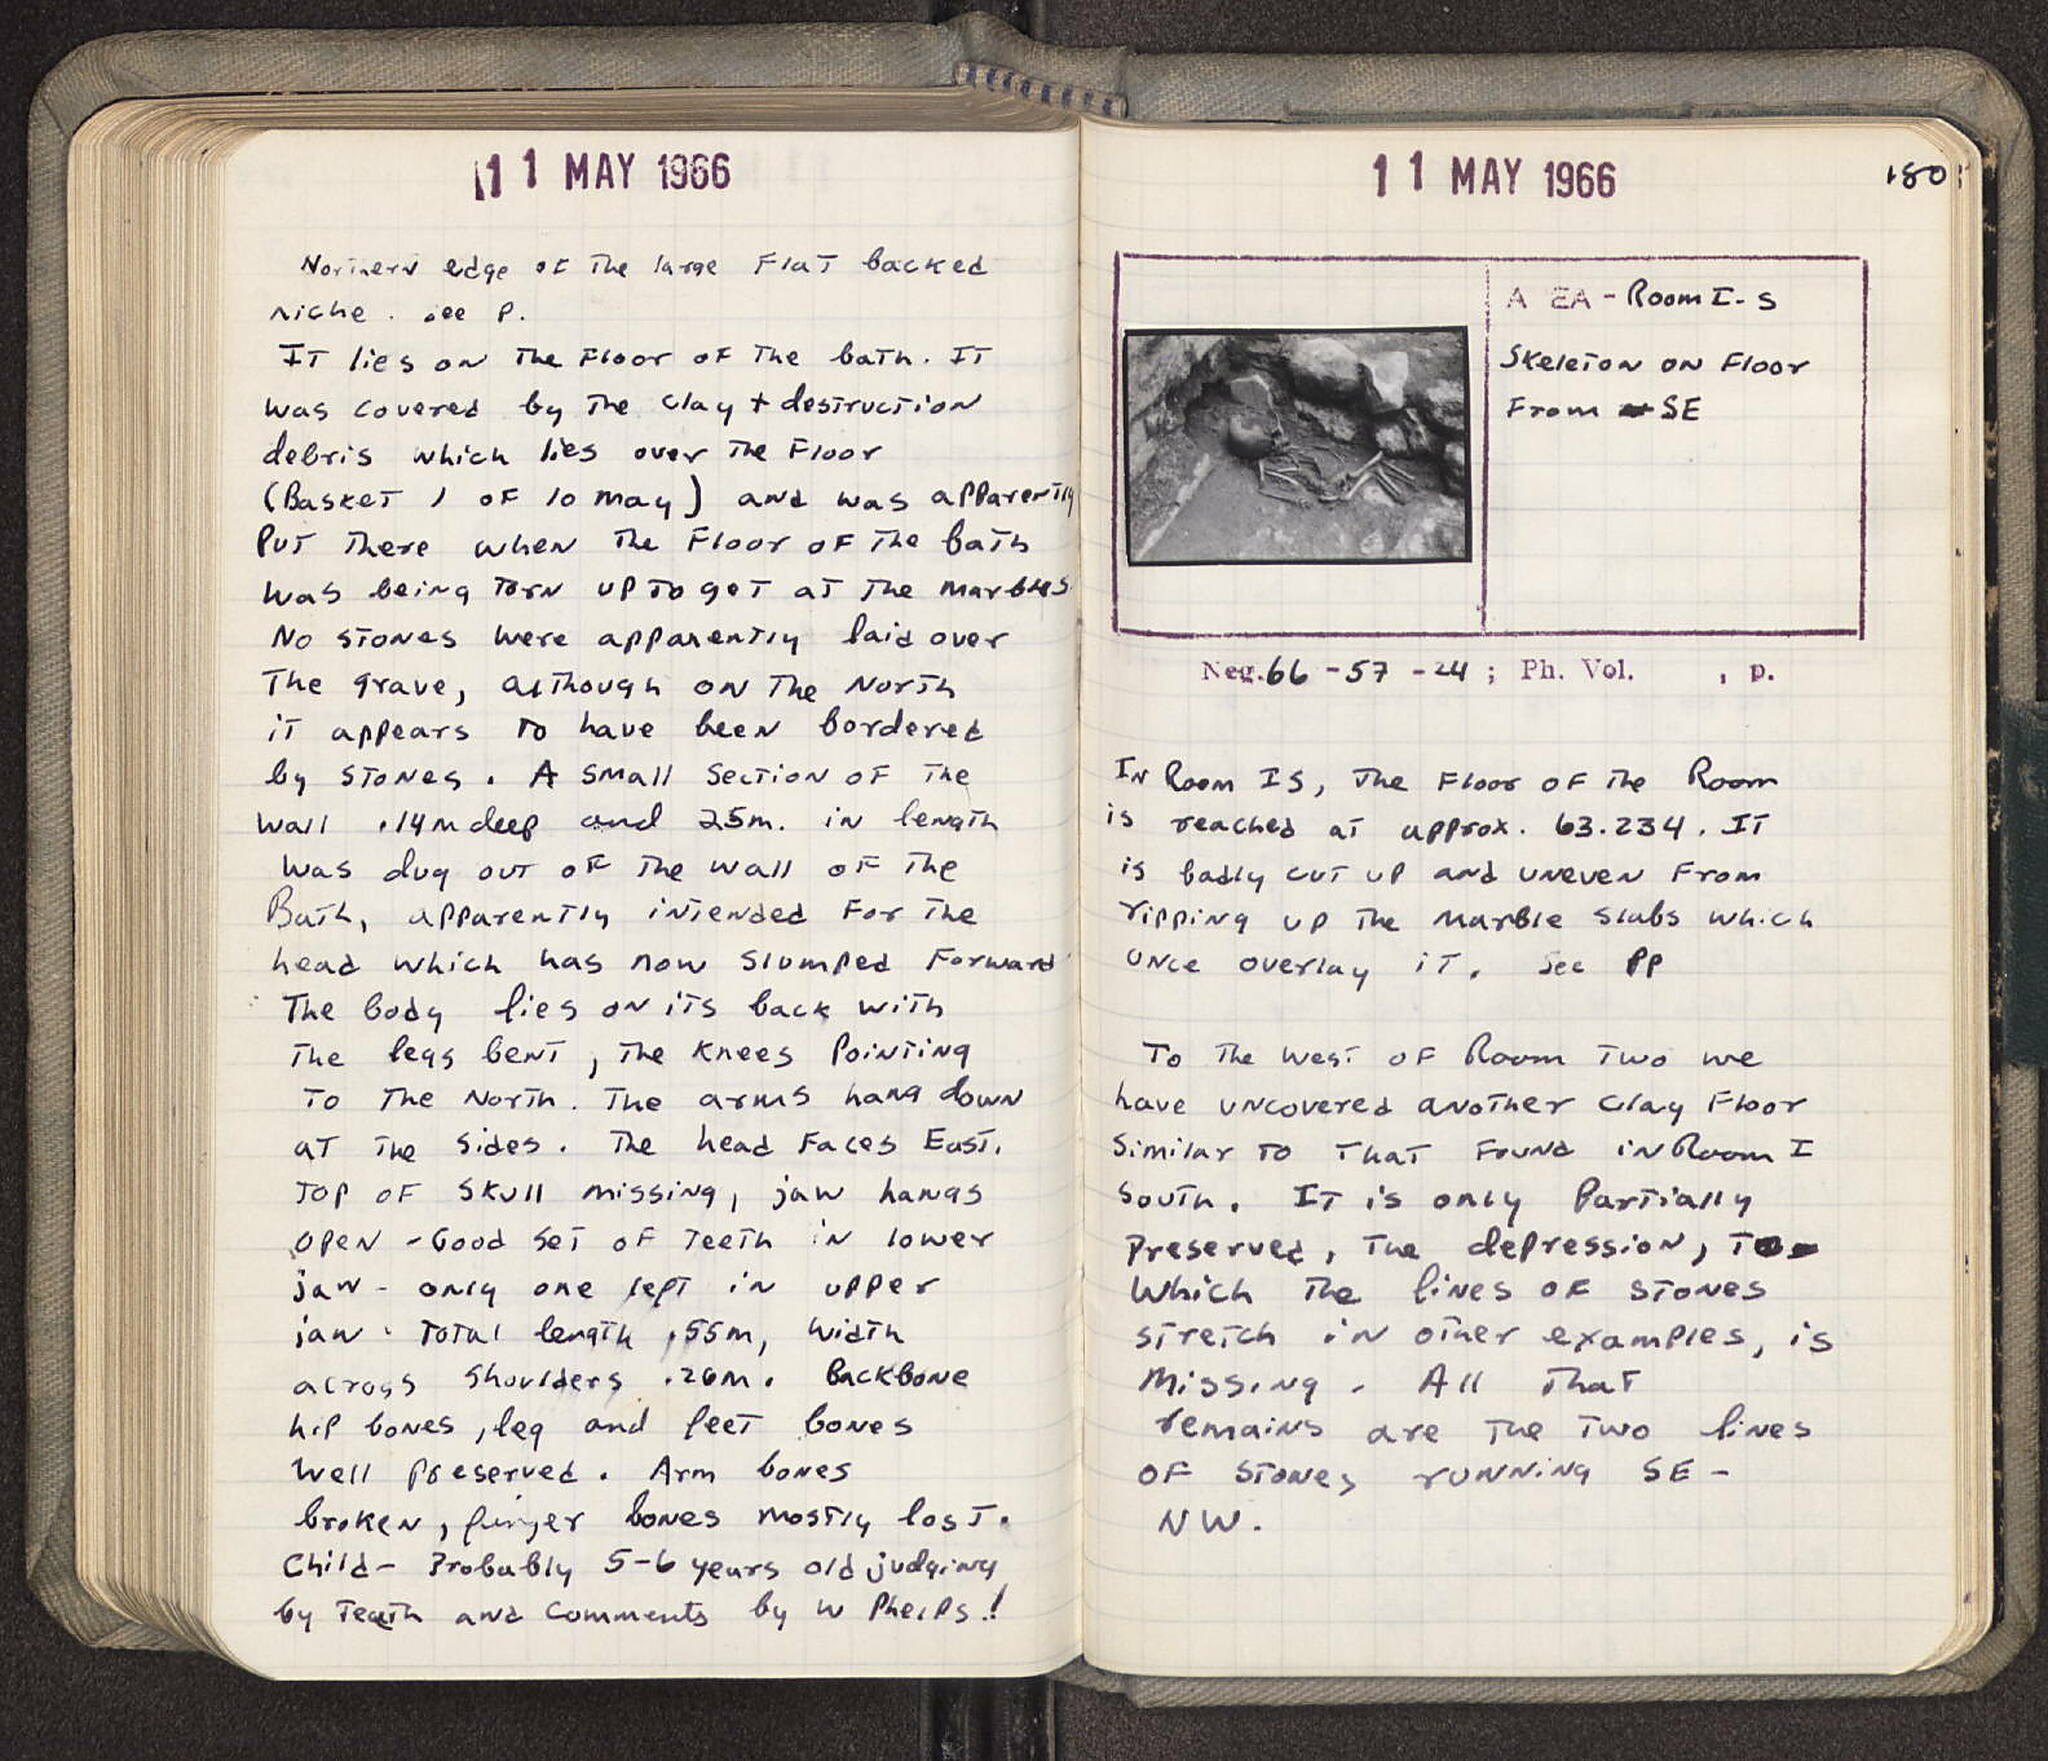 11 MAY 1966
Northern edge of the large Flat backed
niche. see P.
IT lies on the Floor of the bath. IT
was covered by the clay + destruction
debris which lies over the Floor
(Basket 1 of 10 may) and was apparently
Put there when the Floor of the bath
was being Torn up to get at the marbles
No stones were apparently laid over
The grave, although on the North
it appears to have been bordered
by stones. A small section of the
wall .14m deep and 25m. in length
was dug out of the wall of the
Bath, apparently intended For the
head which has now slumped Forward
The body lies on its back with
the legs bent, the knees Pointing
to the North. The arms hang down
at the sides. The head Faces East.
Top of skull missing, jaw hangs
open - Good set of teeth in lower
jaw - only one left in upper
jaw. Total length .55m, width
across shoulders .26m. Backbone
hip bones, leg and feet bones
well preserved. Arm bones
broken, finger bones mostly lost.
Child - Probably 5-6 years old judging
by Teeth and comments by W Phelps!
11 MAY 1966
180
A EA - Room I-S
Skeleton on Floor
From SE
Neg. 66-57-24; Ph. Vol. , p.
In Room IS, the Floor of the Room
is reached at approx. 63.234. IT
is badly cut up and uneven From
ripping up the marble slabs which
once overlay it. See PP
To the west of Room Two we
have uncovered another clay Floor
Similar to that Found in Room I
South. It is only Partially
Preserved, The depression, To
which the lines of stones
stretch in other examples, is
missing. All that
remains are the two lines
of stones running SE -
NW.